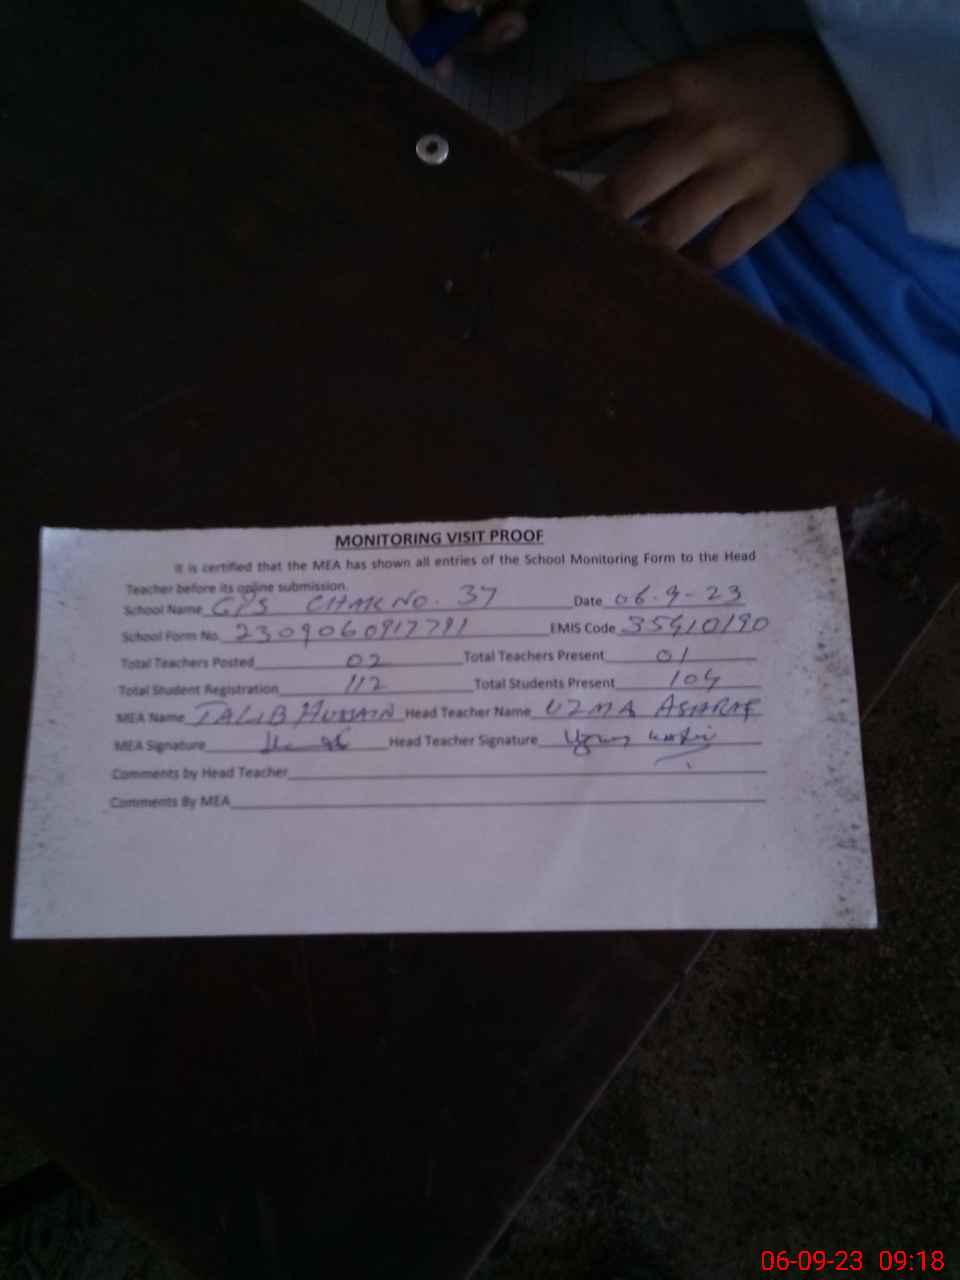 MONITORING VISIT PROOF
It is certified that the MEA has shown all entries of the School Monitoring Form to the Head
Teacher before its online submission.
School Name GPS CHAK NO. 37 Date 06-9-23
School Form No. 2309060917791 EMIS Code 35410190
Total Teachers Posted 02 Total Teachers Present 01
Total Student Registration 112 Total Students Present 104
MEA Name TALIB HUSSAIN Head Teacher Name UZMA ASHRAF
MEA Signature Head Teacher Signature
Comments by Head Teacher
Comments By MEA
06-09-23 09:18